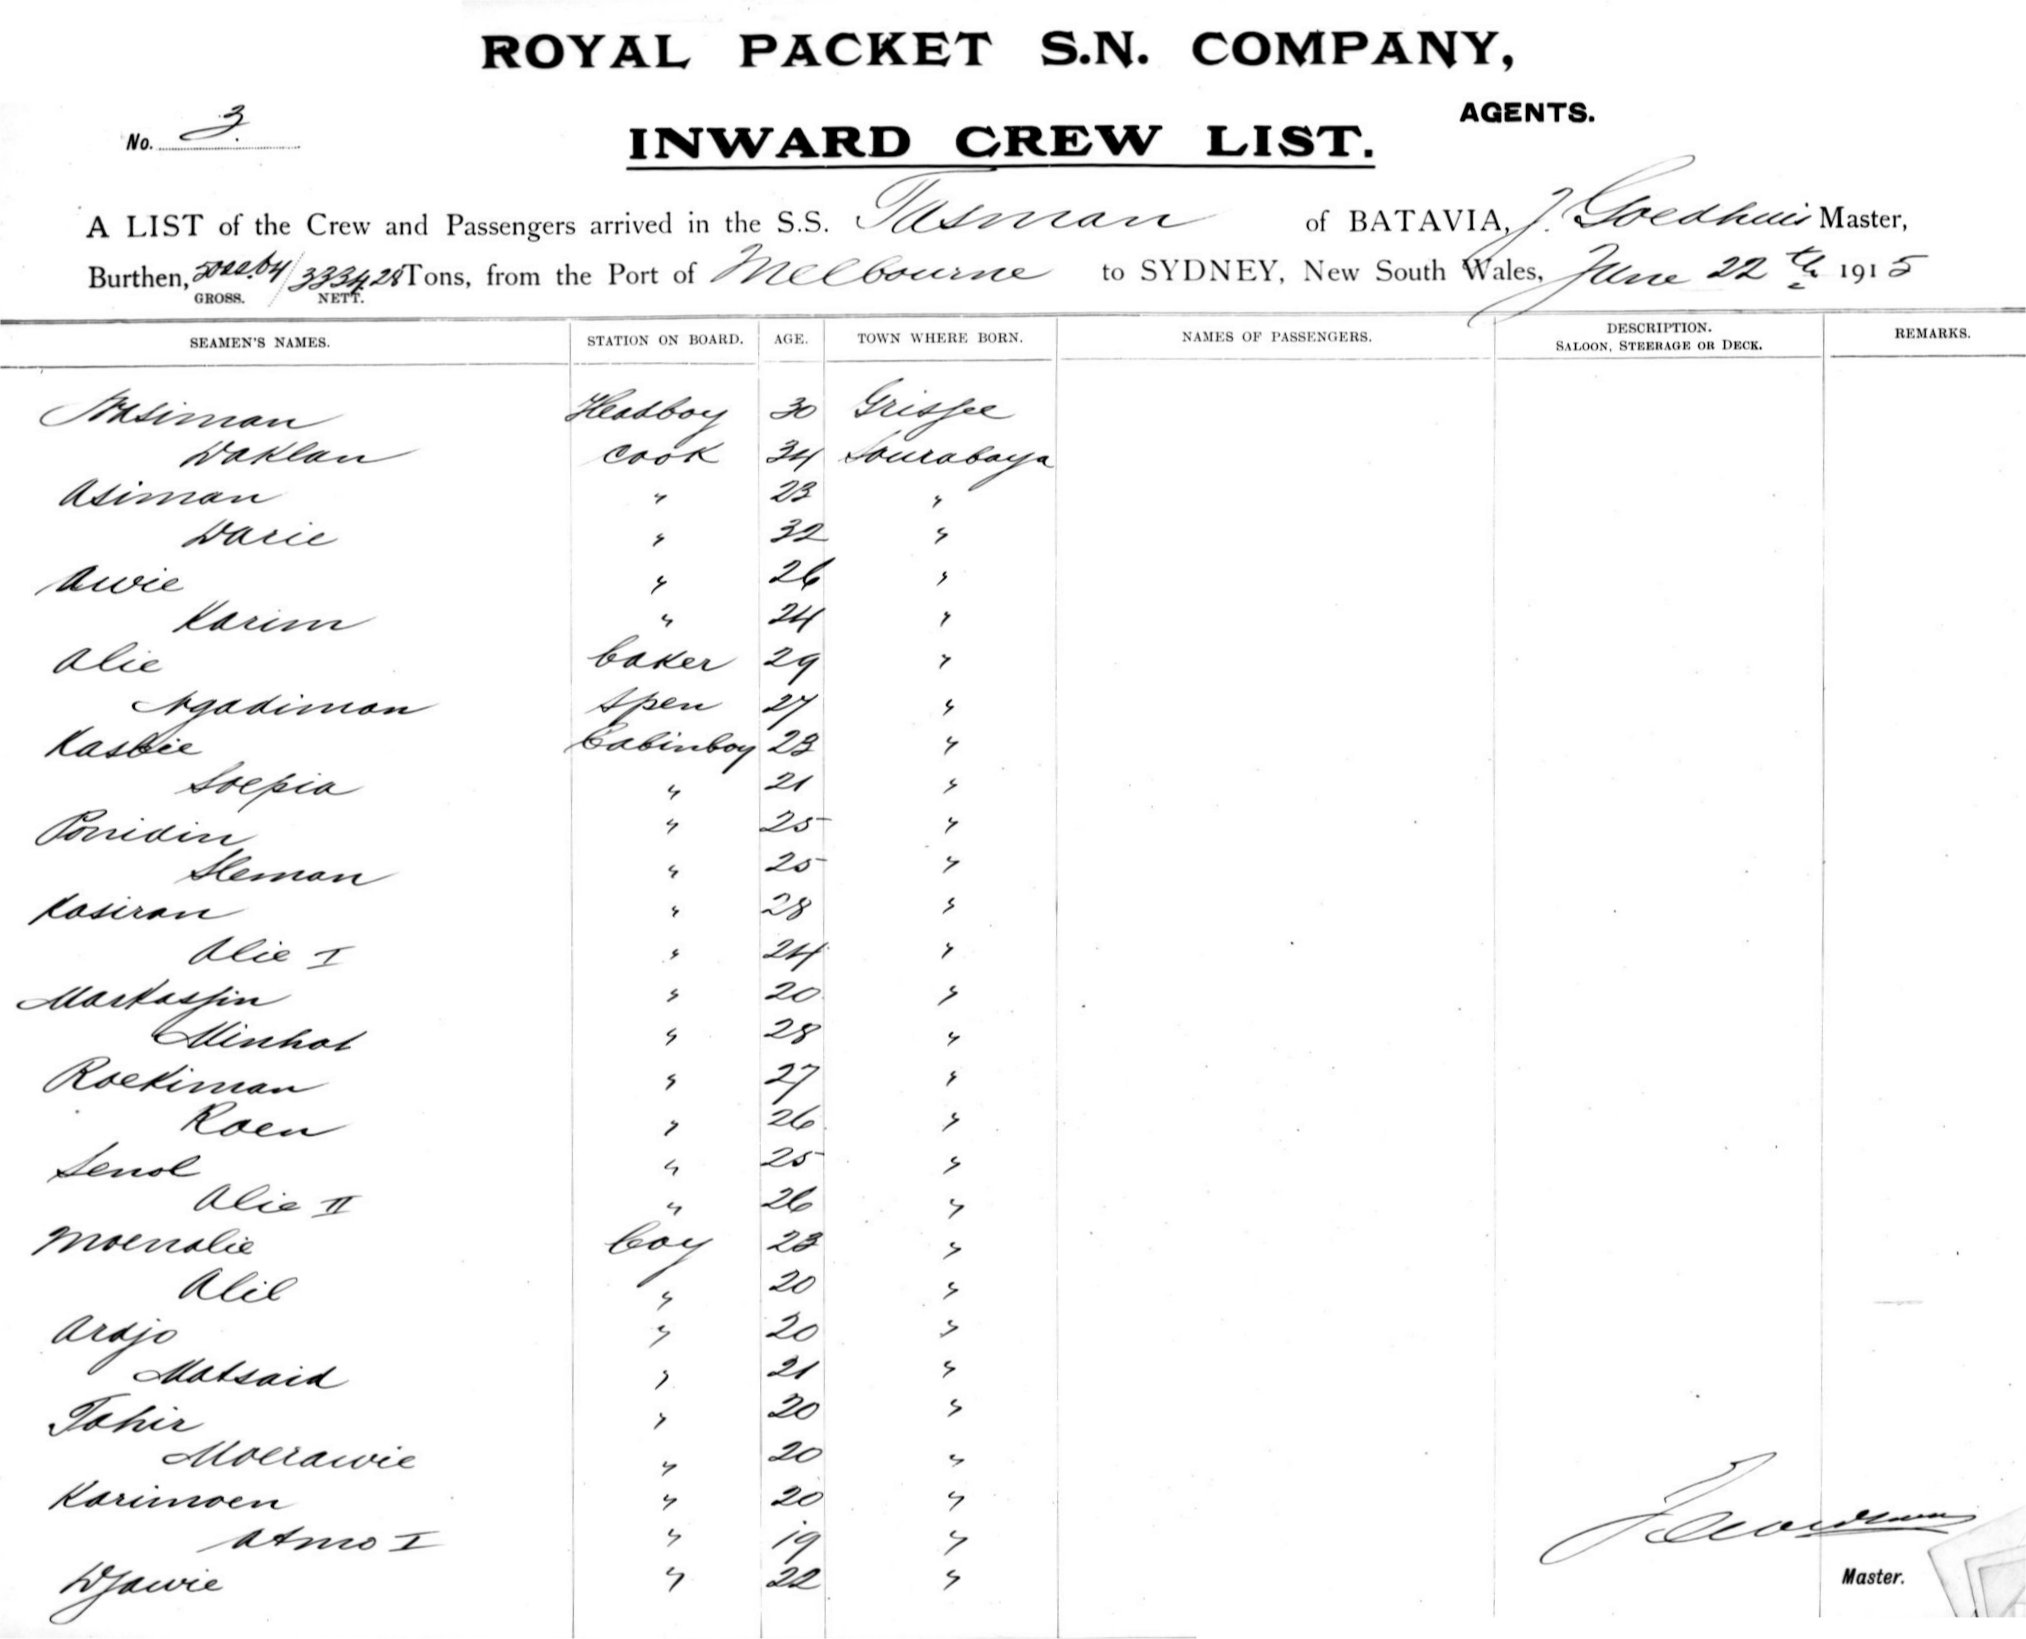 ROYAL PACKET S.N. COMPANY,
AGENTS.
No. 3.
INWARD CREW LIST.
A LIST of the Crew and Passengers arrived in the S.S. Tasman of BATAVIA, J. Goedhuis Master,
Burthen, / 3334.28 Tons, from the Port of Melbourne to SYDNEY, New South Wales, June 22th 1915
GROSS. NETT.
SEAMEN'S NAMES. STATION ON BOARD. AGE. TOWN WHERE BORN. NAMES OF PASSENGERS. DESCRIPTION. SALOON, STEERAGE OR DECK. REMARKS.
Headboy 30 Grissee
Daklan Cook 34 Sourabaya
Asiman " 23 "
Darie " 32 "
Awie " 26 "
Karim " 24 "
Alie baker 29 "
Ngadiman spen 27 "
Kasbie Cabinboy 23 "
Soepia " 21 "
Ponidin " 25 "
Sleman " 25 "
Kasiran " 28 "
Alie I " 24 "
Markassin " 20 "
Minhat " 28 "
Roekiman " 27 "
Roen " 26 "
Senol " 25 "
Alie II " 26 "
Moenalie boy 23 "
Alil " 20 "
Ardjo " 20 "
Matsaid " 21 "
Tahir " 20 "
Moerawie " 20 "
Karimoen " 20 "
Atmo I " 19 "
Djawie " 22 "
Master.